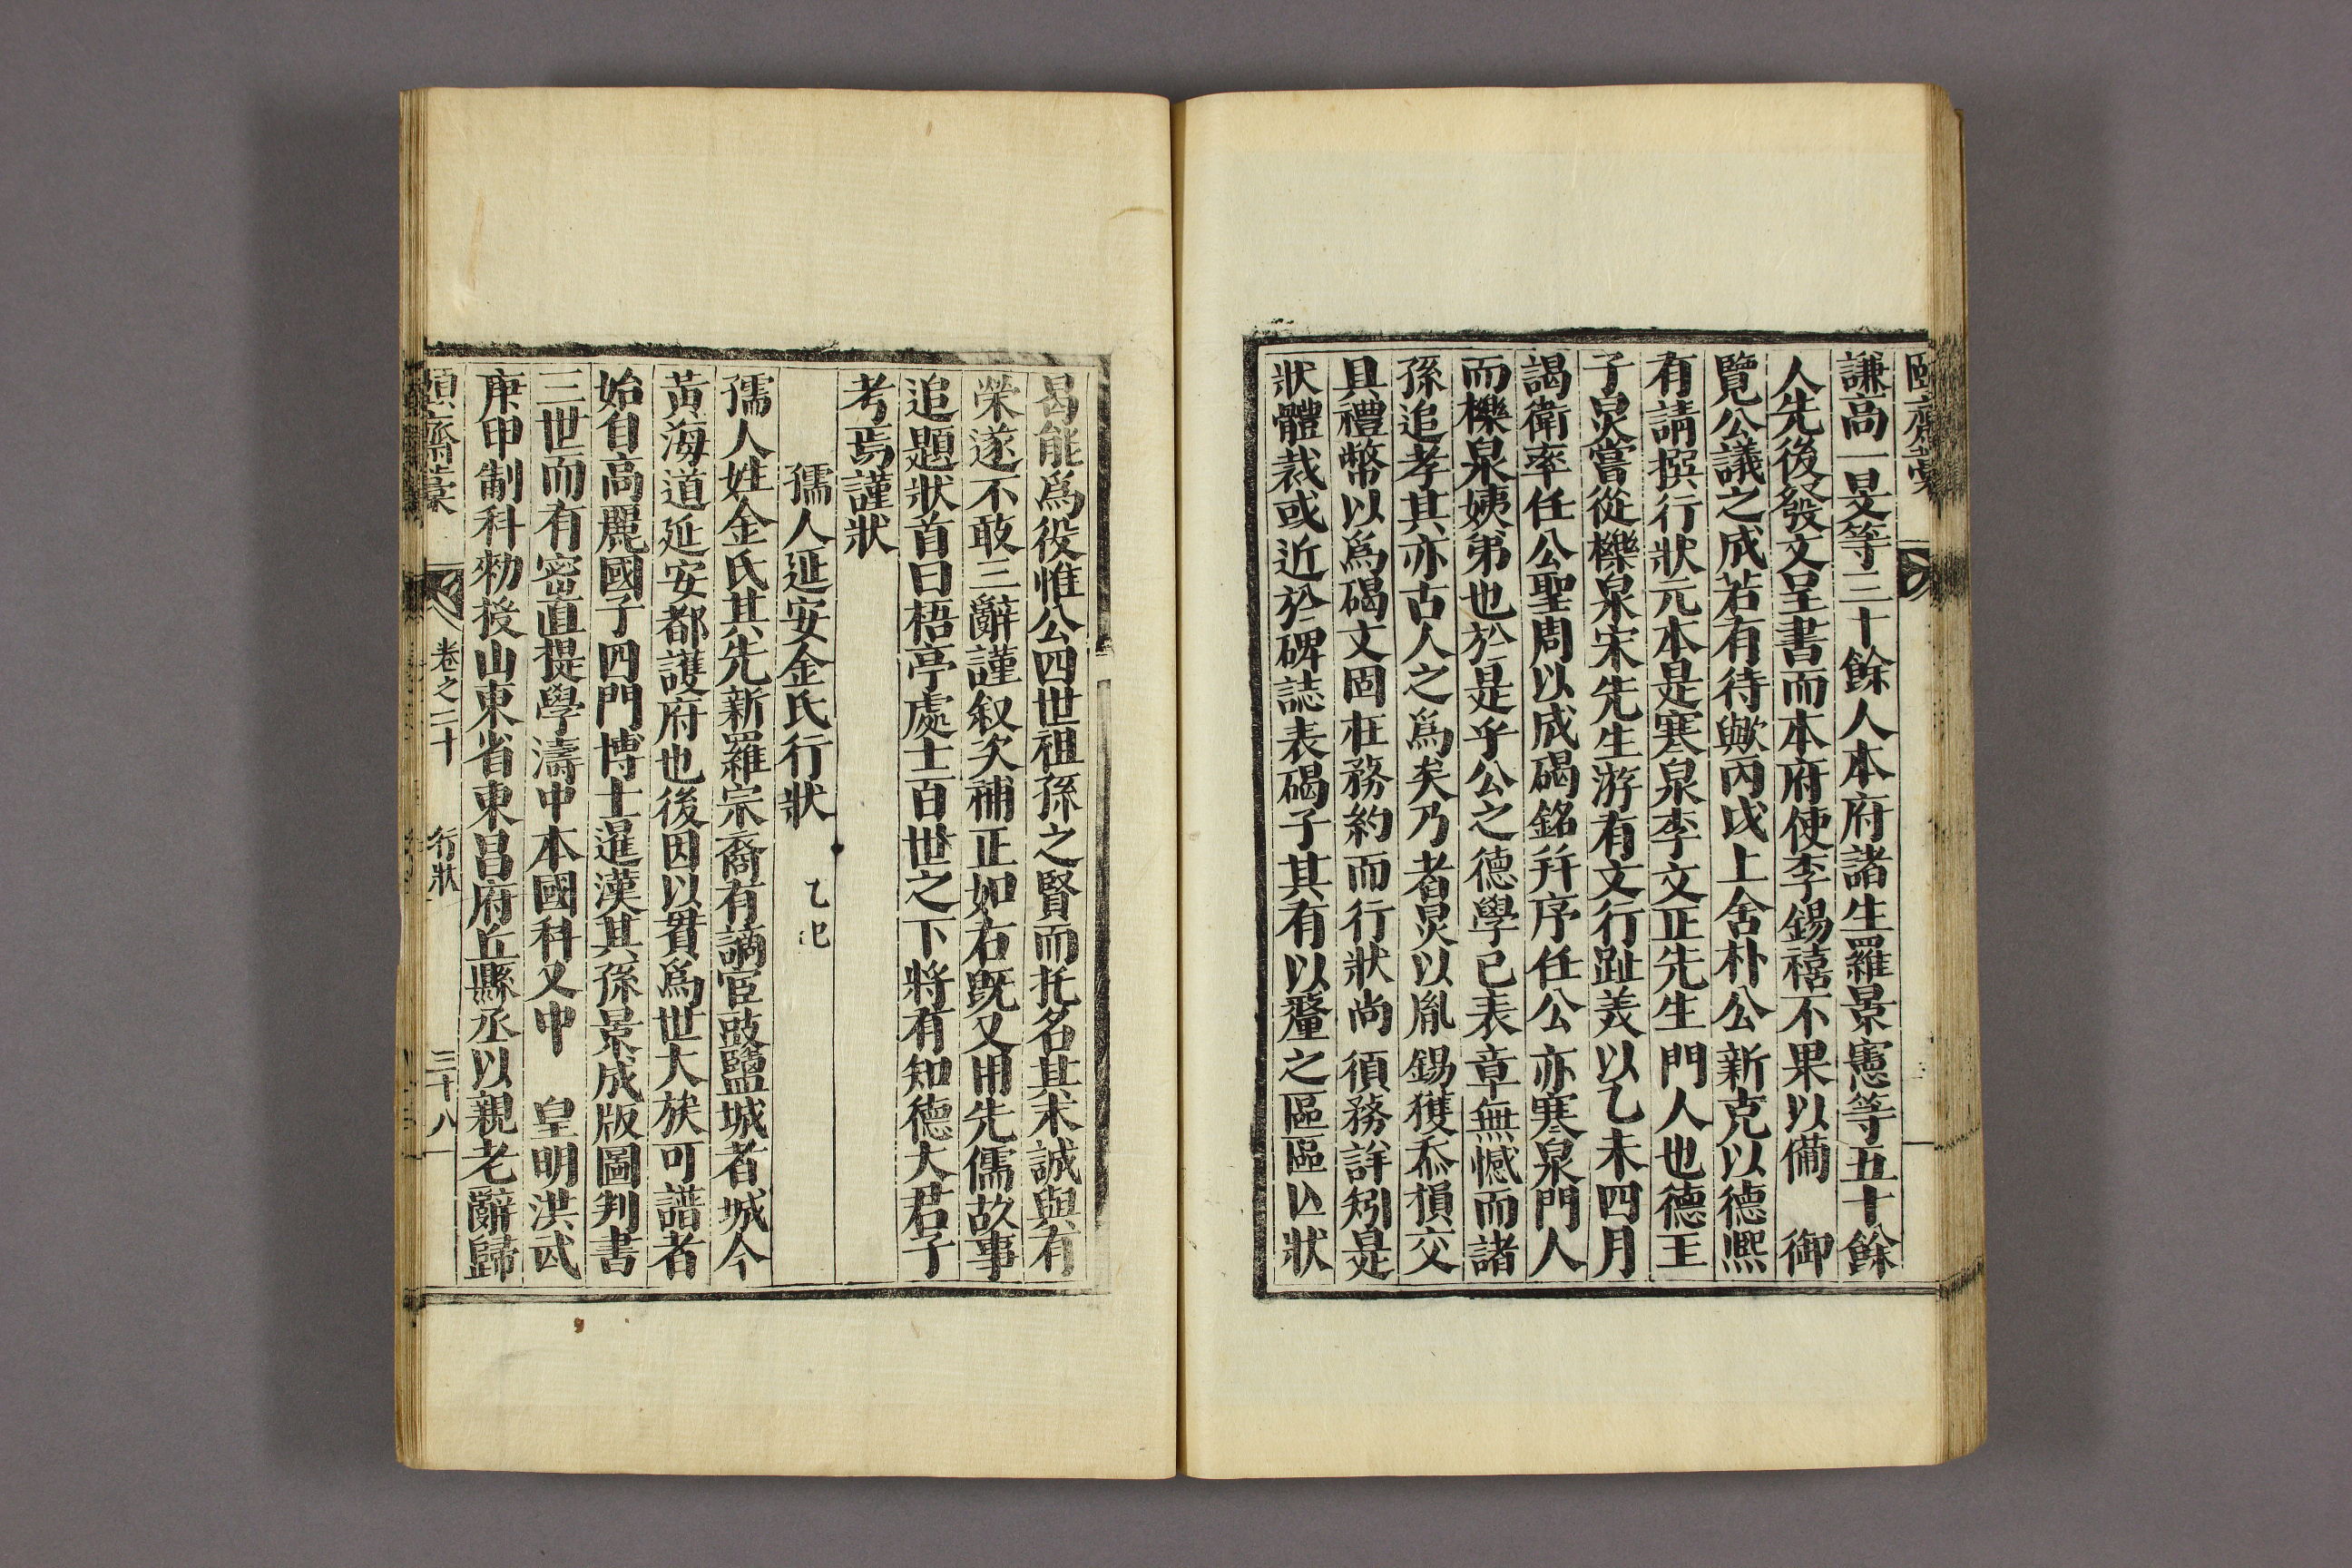 頤齋藁
謙高一旻等三十餘人本府諸生羅景憲等五十餘
人先後發文呈書而本府使李錫禧不果以備 御
覽公議之成若有待歟丙戌上舍朴公新克以德熙
有請撰行狀元本是寒泉李文正先生門人也德王
子炅嘗從櫟泉宋先生游有文行趾美以乙未四月
謁衛率任公聖周以成碣銘幷序任公亦寒泉門人
而櫟泉姨弟也於是乎公之德學已表章無憾而諸
孫追孝其亦古人之爲矣乃者炅以胤錫獲忝損交
具禮幣以爲碣文固在務約而行狀尚須務詳矧是
狀體裁或近於碑誌表碣子其有以釐之區區以狀
曷能爲役惟公四世祖孫之賢而托名其末誠與有
榮遂不敢三辭謹叙次補正如右旣又用先儒故事
追題狀首曰梧亭處士百世之下將有知德大君子
考焉謹狀
孺人延安金氏行狀 乙巳
孺人姓金氏其先新羅宗裔有謫宦豉鹽城者城今
黃海道延安都護府也後因以貫爲世大族可譜者
始自高麗國子四門博士暹漢其孫景成版圖判書
三世而有密直提學濤中本國科又中 皇明洪武
庚申制科勑授山東省東昌府丘縣丞以親老辭歸
頤齋藁 卷之二十 行狀 三十八